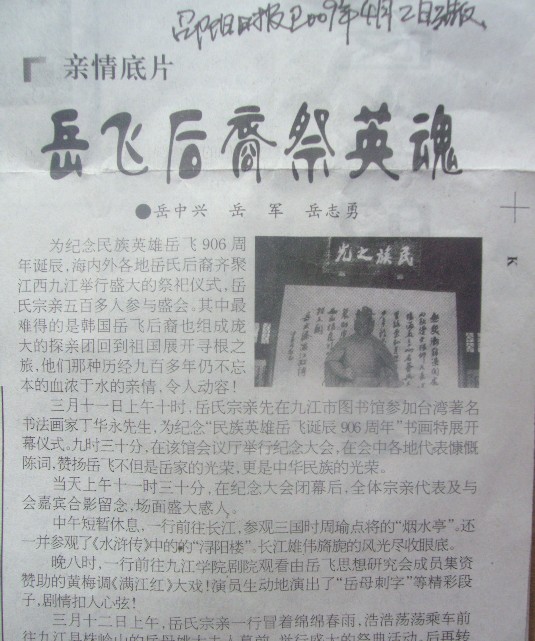 邵阳日报2009年4月2日三版
亲情底片
岳飞后裔祭英魂
●岳中兴 岳 军 岳志勇
为纪念民族英雄岳飞906周
年诞辰，海内外各地岳氏后裔齐聚
江西九江举行盛大的祭祀仪式，岳
氏宗亲五百多人参与盛会。其中最
难得的是韩国岳飞后裔也组成庞
大的探亲团回到祖国展开寻根之
旅，他们那种历经九百多年仍不忘
本的血浓于水的亲情，令人动容！
民族之光
三月十一日上午十时，岳氏宗亲先在九江市图书馆参加台湾著名
书法画家丁华永先生，为纪念“民族英雄岳飞诞辰906周年”书画特展开
幕仪式。九时三十分，在该馆会议厅举行纪念大会，在会中各地代表慷慨
陈词，赞扬岳飞不但是岳家的光荣，更是中华民族的光荣。
当天上午十一时三十分，在纪念大会闭幕后，全体宗亲代表及与
会嘉宾合影留念，场面盛大感人。
中午短暂休息，一行前往长江，参观三国时周瑜点将的“烟水亭”。还
一并参观了《水浒传》中的的“浔阳楼”。长江雄伟旖旎的风光尽收眼底。
晚八时，一行前往九江学院剧院观看由岳飞思想研究会成员集资
赞助的黄梅调《满江红》大戏！演员生动地演出了“岳母刺字”等精彩段
子，剧情扣人心弦！
三月十二日上午，岳氏宗亲一行冒着绵绵春雨，浩浩荡荡乘车前
K